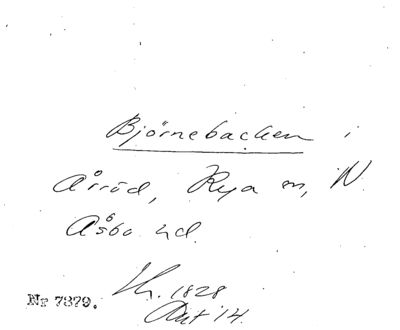 Björnebacken i
Årröd, Rya sn, N.
Åsbo hd.
1828
Akt 14.
Nr 7379.